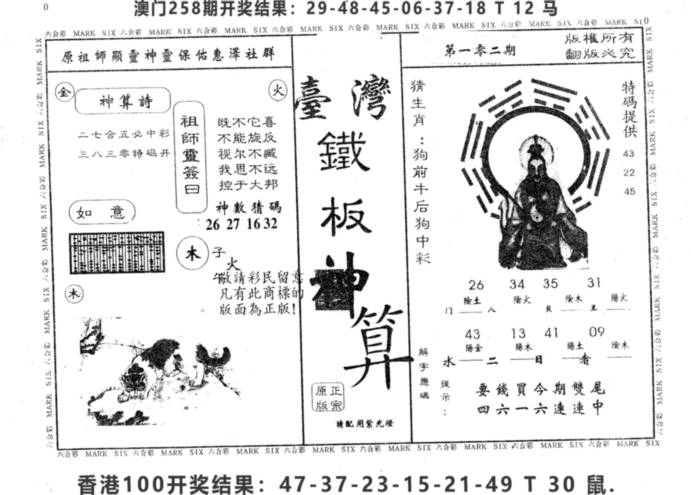 澳门258期开奖结果：29-48-45-06-37-18 T 12 马
原祖師顯靈神靈保佑惠澤社群
金
神算詩
火
二七合五必中彩
三八三零特码开
祖師靈簽曰
既不它喜
不能旋反
视尔不臧
我思不远
控于大邦
神數猜碼
26 27 16 32
如意
木
木
子
火
午
敬請彩民留意
凡有此商標的
版面為正版!
臺灣
鐵
板
神
算
正宗
原版
請配用紫光燈
第一零二期
版權所有
翻版必究
猜生肖：狗前牛后狗中彩
特碼提供
43
22
45
26 34 35 31
陰土 陰火 陰木 陽火
门 八 貝 丑
43 13 41 09
陽金 陽木 陽土 陰木
水 二 日 香
解字應碼
提示：
要錢買今期雙尾
四六一六連連中
香港100开奖结果：47-37-23-15-21-49 T 30 鼠.